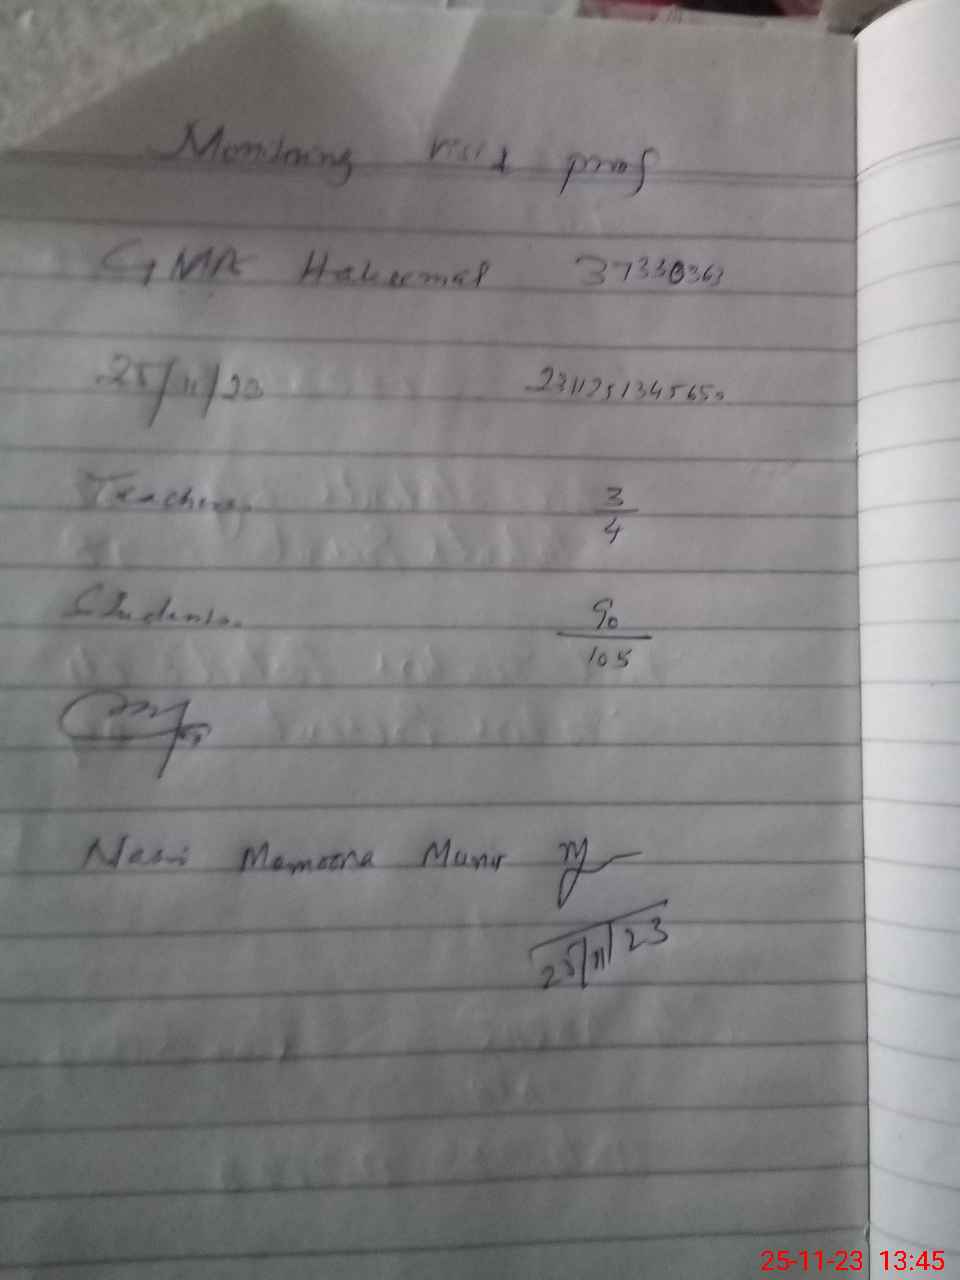 Monitoring visit proof
GMA 37330363
25/11/23 2311251345650
Teachers 3/4
Students. 90/105
Mamoona Munir
25/11/23
25-11-23 13:45